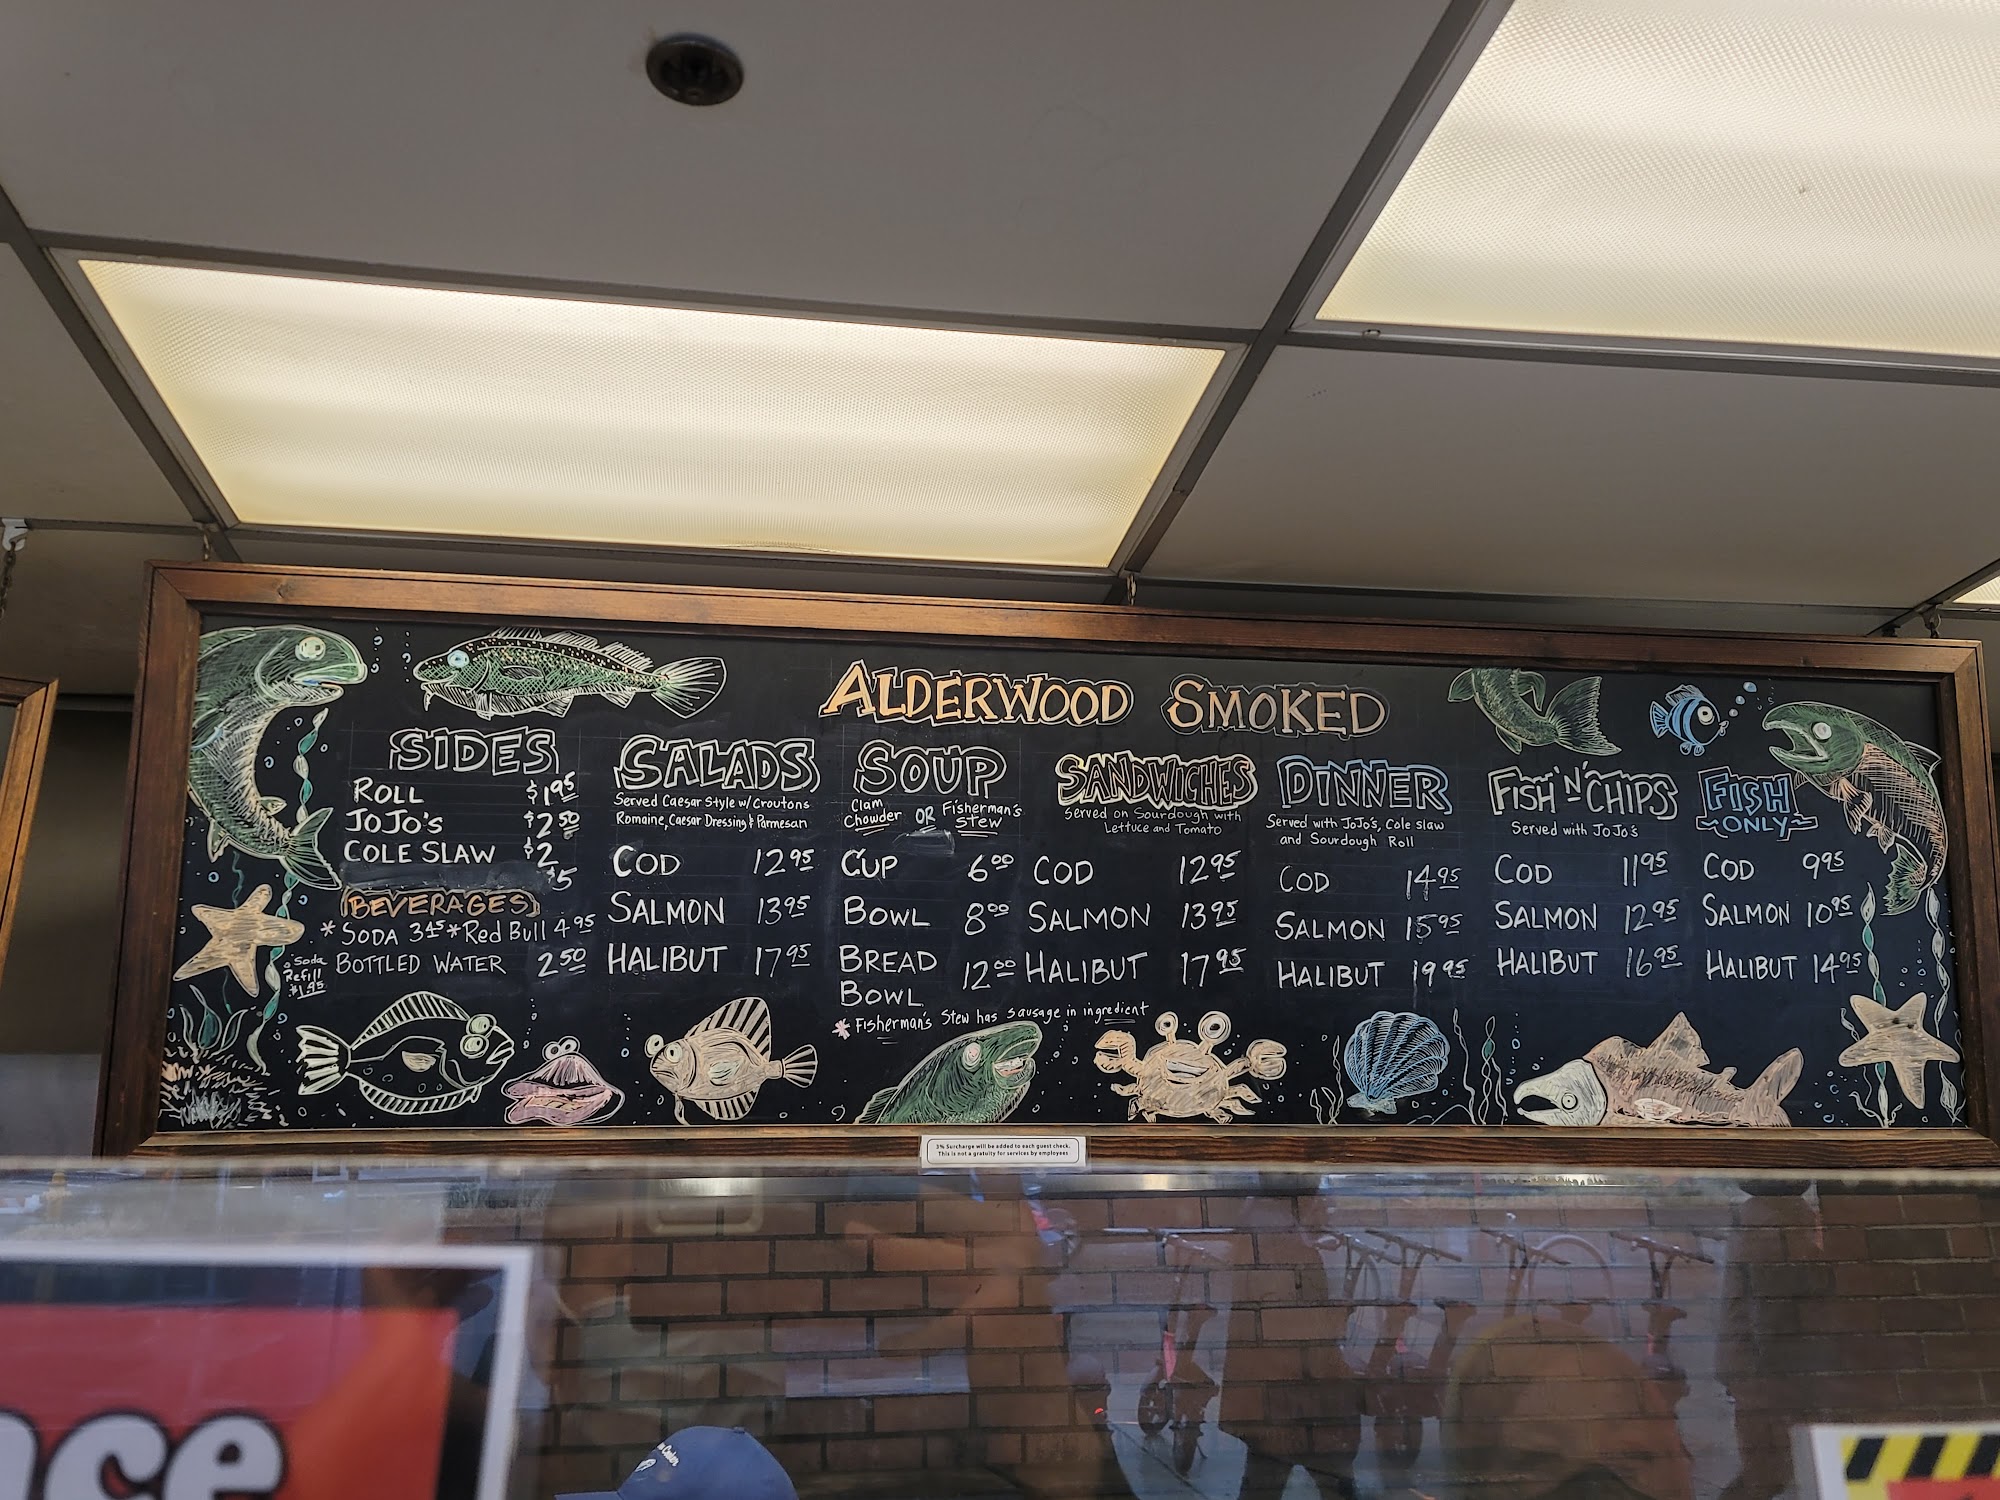 ALDERWOOD SMOKED
SIDES
ROLL $1.95
JOJO'S $2.50
COLE SLAW $2
$5
BEVERAGES
* SODA 3.45 * Red Bull 4.95
BOTTLED WATER 2.50
Soda
Refill
$1.95
SALADS
Served Caesar Style w/ Croutons
Romaine, Caesar Dressing & Parmesan
COD 12.95
SALMON 13.95
HALIBUT 17.95
SOUP
Clam Chowder OR Fisherman's Stew
CUP 6.00
BOWL 8.00
BREAD BOWL 12.00
* Fisherman's Stew has sausage in ingredient
SANDWICHES
Served on Sourdough with
Lettuce and Tomato
COD 12.95
SALMON 13.95
HALIBUT 17.95
DINNER
Served with JoJo's, Cole slaw
and Sourdough Roll
COD 14.95
SALMON 15.95
HALIBUT 19.95
FISH 'N' CHIPS
Served with JoJo's
COD 11.95
SALMON 12.95
HALIBUT 16.95
FISH
~ONLY~
COD 9.95
SALMON 10.95
HALIBUT 14.95
3% Surcharge will be added to each guest check.
This is not a gratuity for services by employees